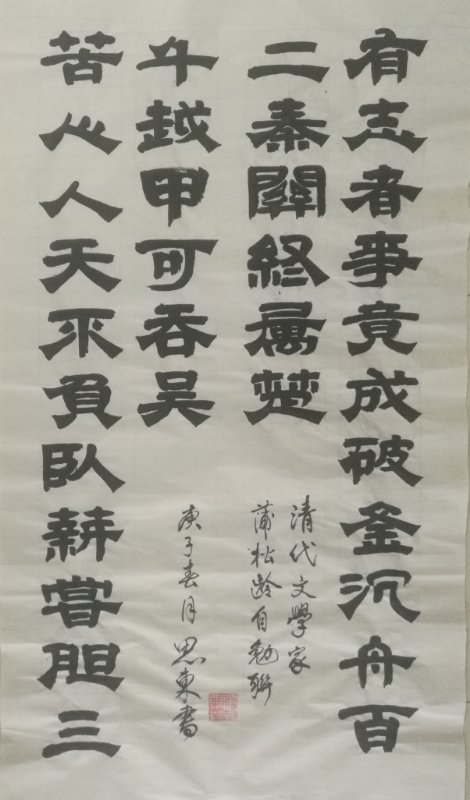 有志者事竟成破釜沉舟百
二秦關終属楚
苦心人天不負臥薪嘗胆三
千越甲可吞吴
清代文學家
蒲松龄自勉聯
庚子春月 思東書